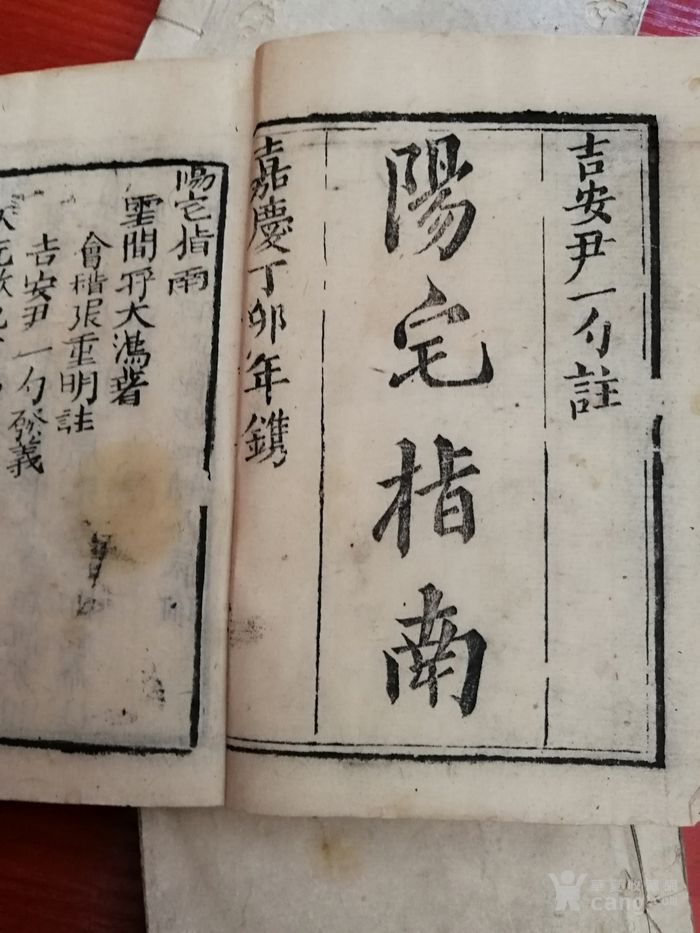 吉安尹一勺註
陽宅指南
嘉慶丁卯年鐫
陽宅指南
雲間蔣大鴻著
會稽張重明註
吉安尹一勺發義